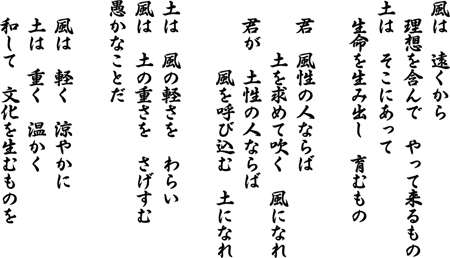 風は 遠くから
理想を含んで やって来るもの
土は そこにあって
生命を生み出し 育むもの
君 風性の人ならば
土を求めて吹く 風になれ
君が 土性の人ならば
風を呼び込む 土になれ
土は 風の軽さを わらい
風は 土の重さを さげすむ
愚かなことだ
風は 軽く 涼やかに
土は 重く 温かく
和して 文化を生むものを